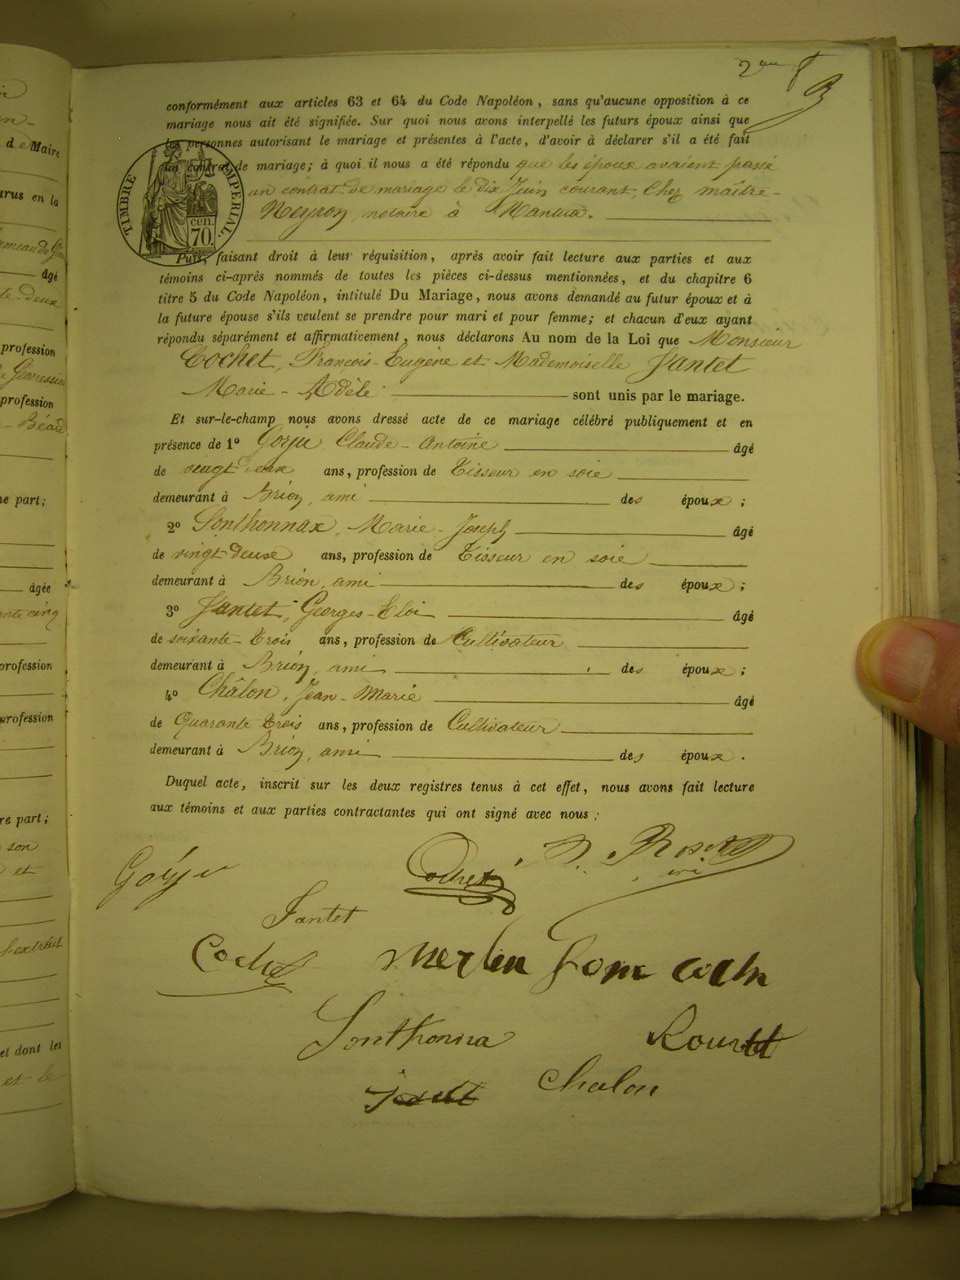 conformément aux articles 63 et 64 du Code Napoléon, sans qu'aucune opposition à ce
mariage nous ait été signifiée. Sur quoi nous avons interpellé les futurs époux ainsi que
les personnes autorisant le mariage et présentes à l'acte, d'avoir à déclarer s'il a été fait
un contrat de mariage; à quoi il nous a été répondu que les époux avaient passé
un contrat de mariage le dix Juin courant, chez maître
Neyron, notaire à Nantua.
TIMBRE IMPERIAL.
cen.
70.
Puis, faisant droit à leur réquisition, après avoir fait lecture aux parties et aux
témoins ci-après nommés de toutes les pièces ci-dessus mentionnées, et du chapitre 6
titre 5 du Code Napoléon, intitulé Du Mariage, nous avons demandé au futur époux et à
la future épouse s'ils veulent se prendre pour mari et pour femme; et chacun d'eux ayant
répondu séparément et affirmativement, nous déclarons Au nom de la Loi que Monsieur
Cochet, François-Eugène et Mademoiselle Jantet
Marie-Adèle sont unis par le mariage.
Et sur-le-champ nous avons dressé acte de ce mariage célébré publiquement et en
présence de 1º Gorju Claude-Antoine âgé
de vingt deux ans, profession de Tisseur en soie
demeurant à Brion, ami des époux;
2º Sonthonnax, Marie-Joseph âgé
de vingt deuse ans, profession de Tisseur en soie
demeurant à Brion, ami des époux;
3º Jantet, Georges-Eloi âgé
de soixante-trois ans, profession de Cultivateur
demeurant à Brion, ami des époux;
4º Châlon, Jean-Marie âgé
de Quarante trois ans, profession de Cultivateur
demeurant à Brion, ami des époux.
Duquel acte, inscrit sur les deux registres tenus à cet effet, nous avons fait lecture
aux témoins et aux parties contractantes qui ont signé avec nous:
Cochet
Gorju
Jantet
Cochet Merlin
Sonthonna
Chalon